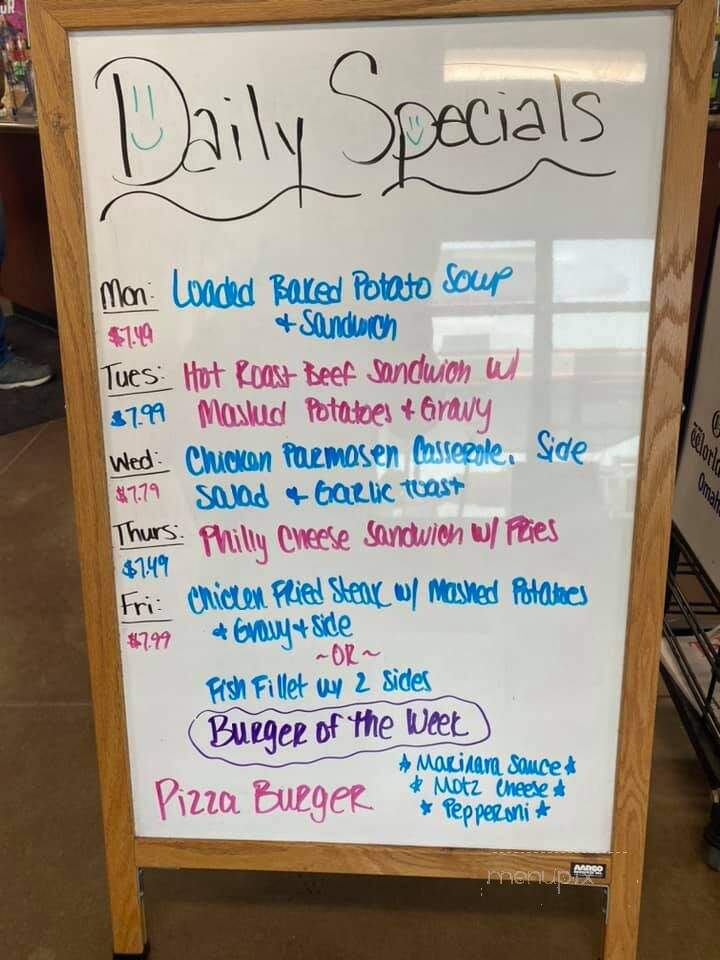 Daily Specials
Mon: Loaded Baked Potato Soup
$7.49 + Sandwich
Tues: Hot Roast Beef Sandwich w/
$7.99 Mashed Potatoes + Gravy
Wed: Chicken Parmasen Casserole, Side
$7.79 Salad + Garlic Toast
Thurs: Philly Cheese Sandwich w/ Fries
$7.49
Fri: Chicken Fried Steak w/ Mashed Potatoes
$7.99 + Gravy + Side
~OR~
Fish Fillet w/ 2 Sides
Burger of the Week
Pizza Burger
* Marinara Sauce *
* Motz Cheese *
* Pepperoni *
AARCO
menupix